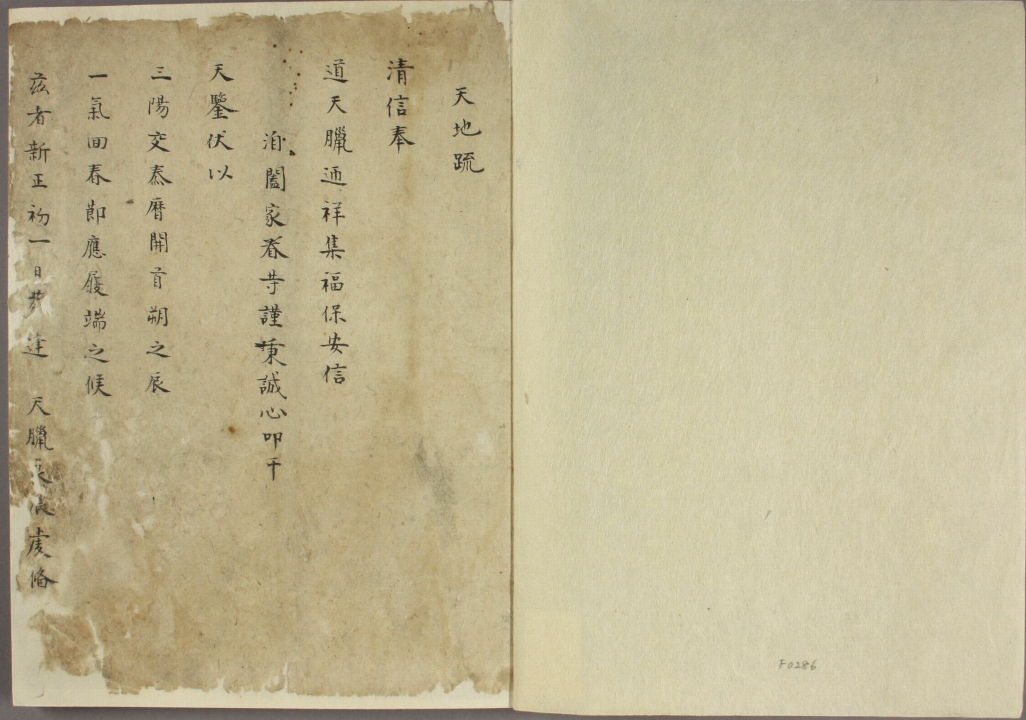 天地疏
清信奉
道天臘迊祥集福保安信
洎闔家眷等謹秉誠心叩干
天鑒伏以
三陽交泰曆開首朔之辰
一氣回春節應履端之候
茲者新正初一日恭逢 天臘良辰虔俻
F0286